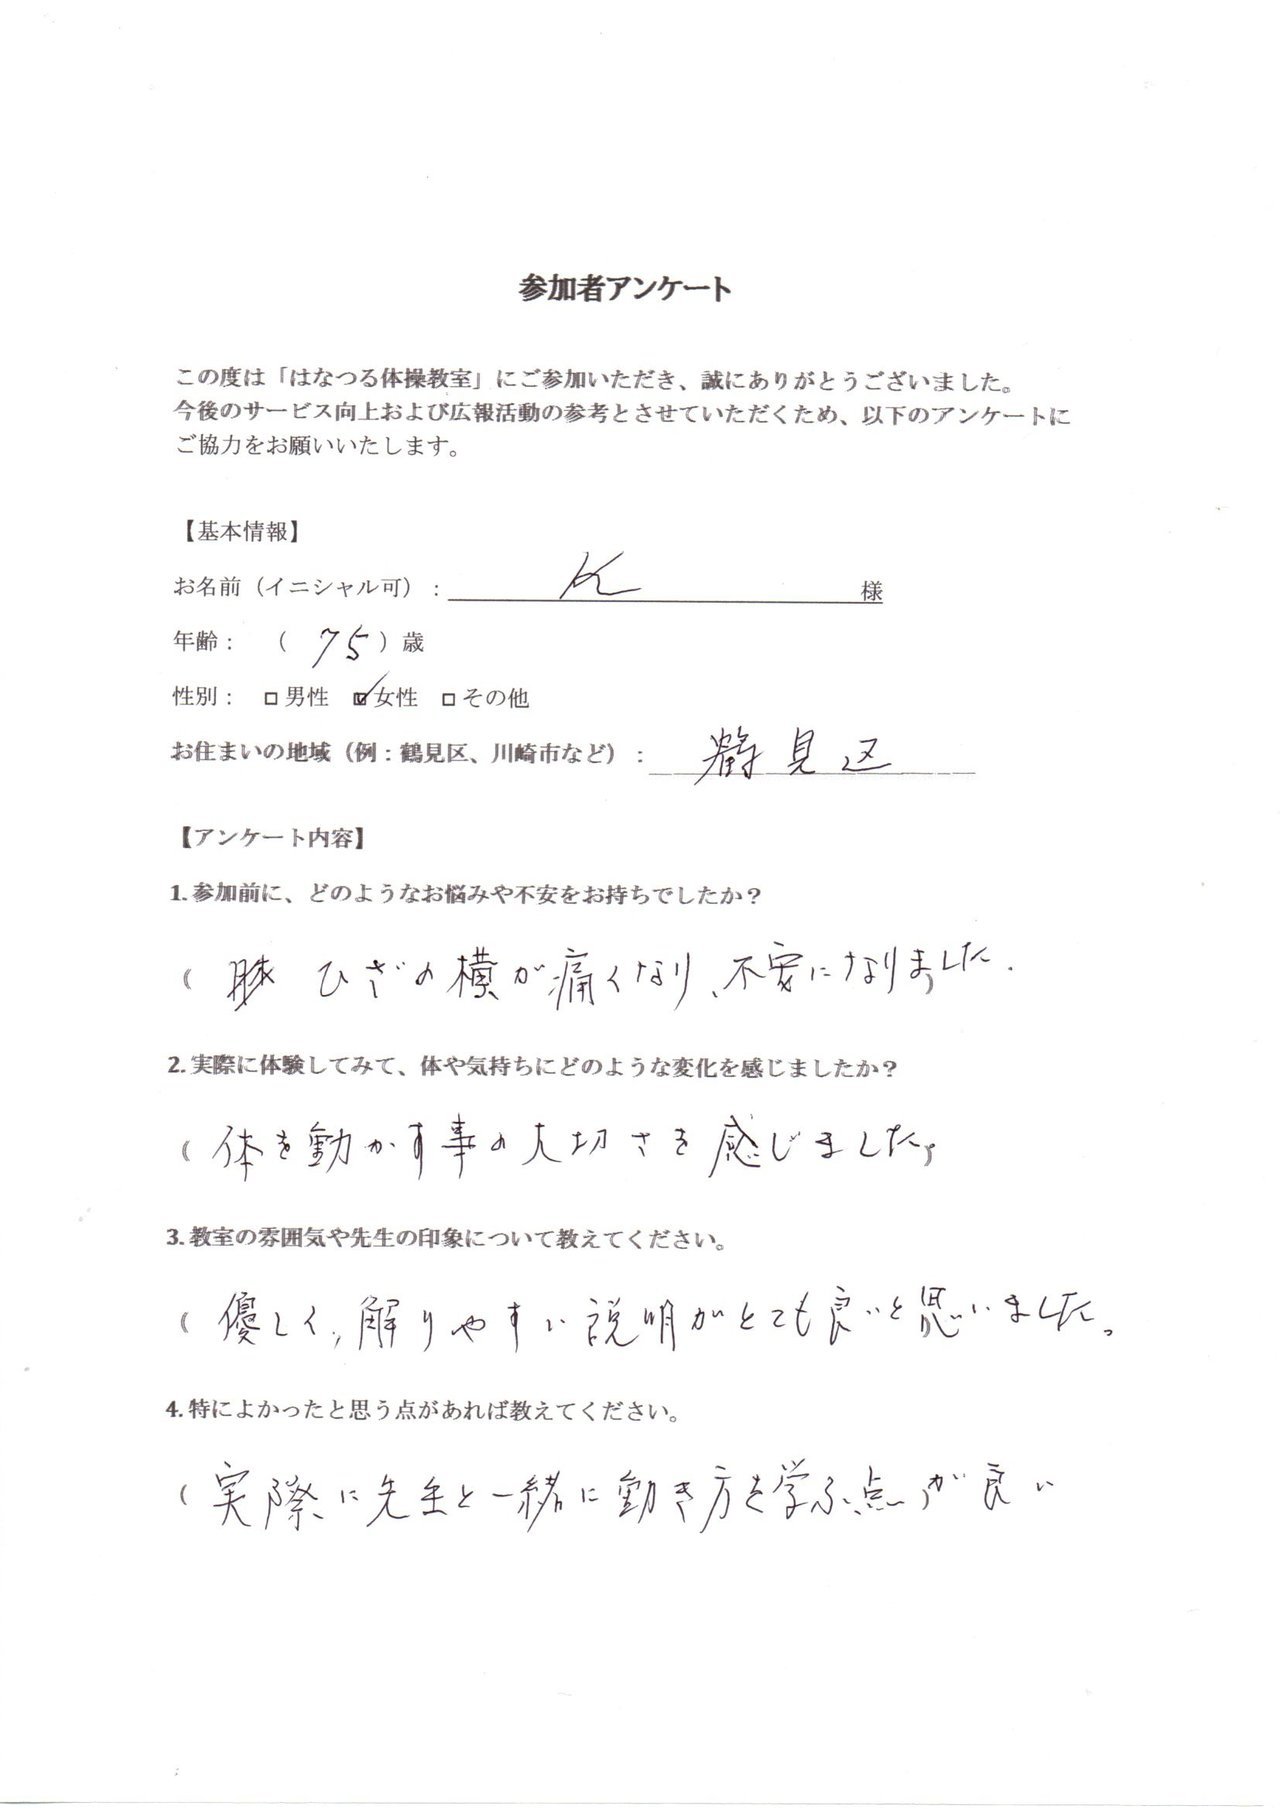 参加者アンケート
この度は「はなつる体操教室」にご参加いただき、誠にありがとうございました。
今後のサービス向上および広報活動の参考とさせていただくため、以下のアンケートに
ご協力をお願いいたします。
【基本情報】
お名前（イニシャル可）： K 様
年齢： （ 75 ）歳
性別： □男性 ☑女性 □その他
お住まいの地域（例：鶴見区、川崎市など）： 鶴見区
【アンケート内容】
1. 参加前に、どのようなお悩みや不安をお持ちでしたか？
（ ひざの横が痛くなり、不安になりました. ）
2. 実際に体験してみて、体や気持ちにどのような変化を感じましたか？
（ 体を動かす事の大切さを感じました ）
3. 教室の雰囲気や先生の印象について教えてください。
（ 優しく、解りやすい説明がとても良いと思いました。
4. 特によかったと思う点があれば教えてください。
（ 実際に先生と一緒に動き方を学ぶ点が良い